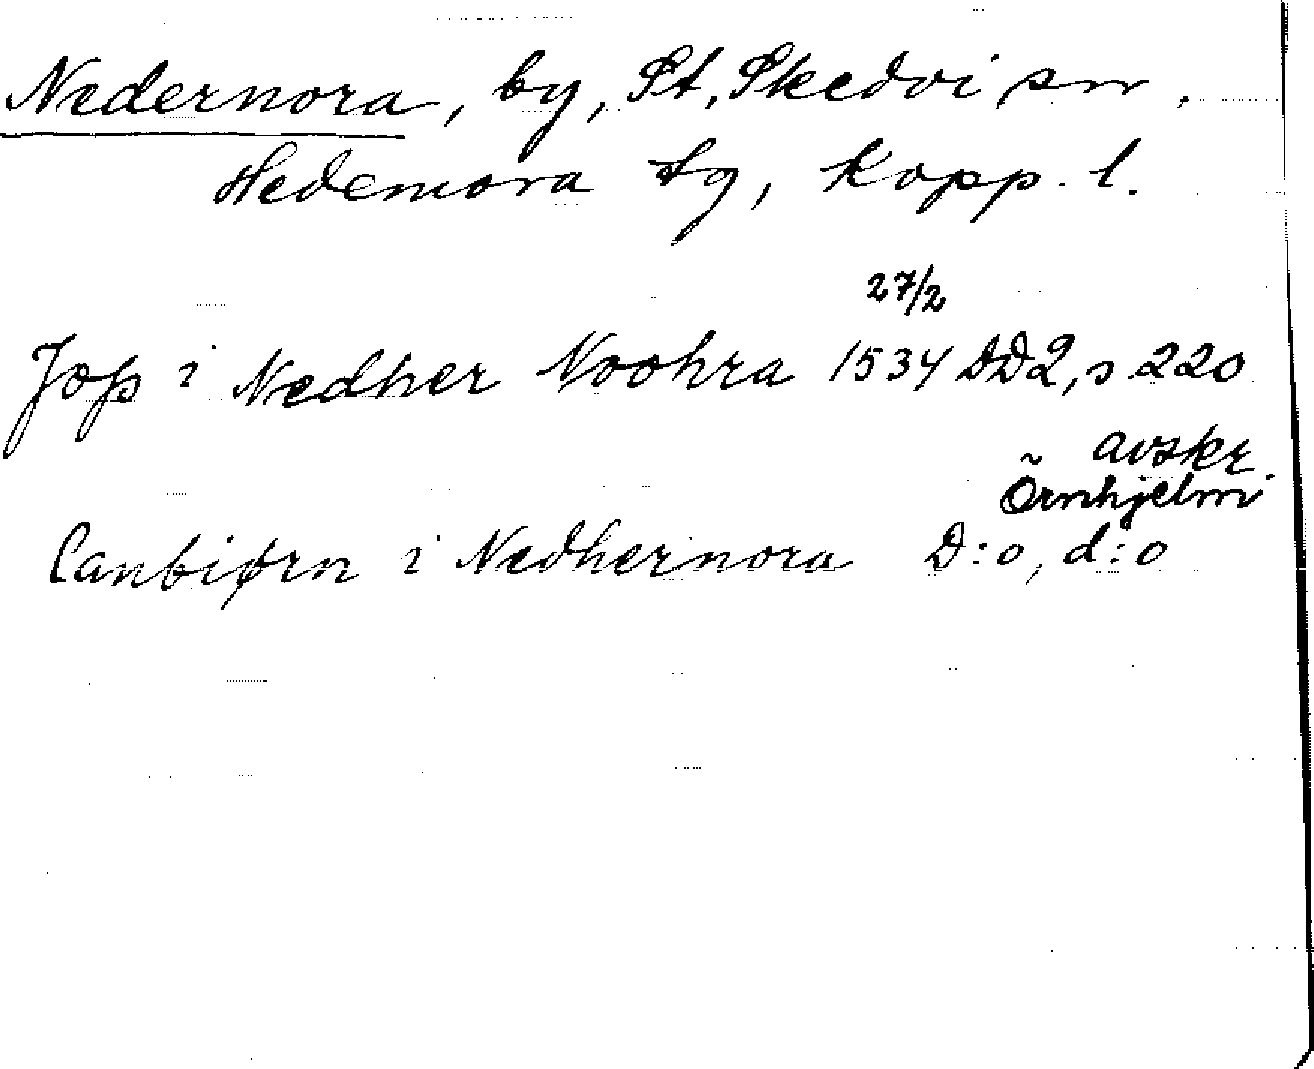 Nedernora, by, St. Skedvi sn.
Hedemora tg, Kopp. l.
27/2
Jop i Nedher Noohra 1534 DD2, s 220
avskr.
Örnhjelm
Canbiørn i Nedhernora D:o, d:o